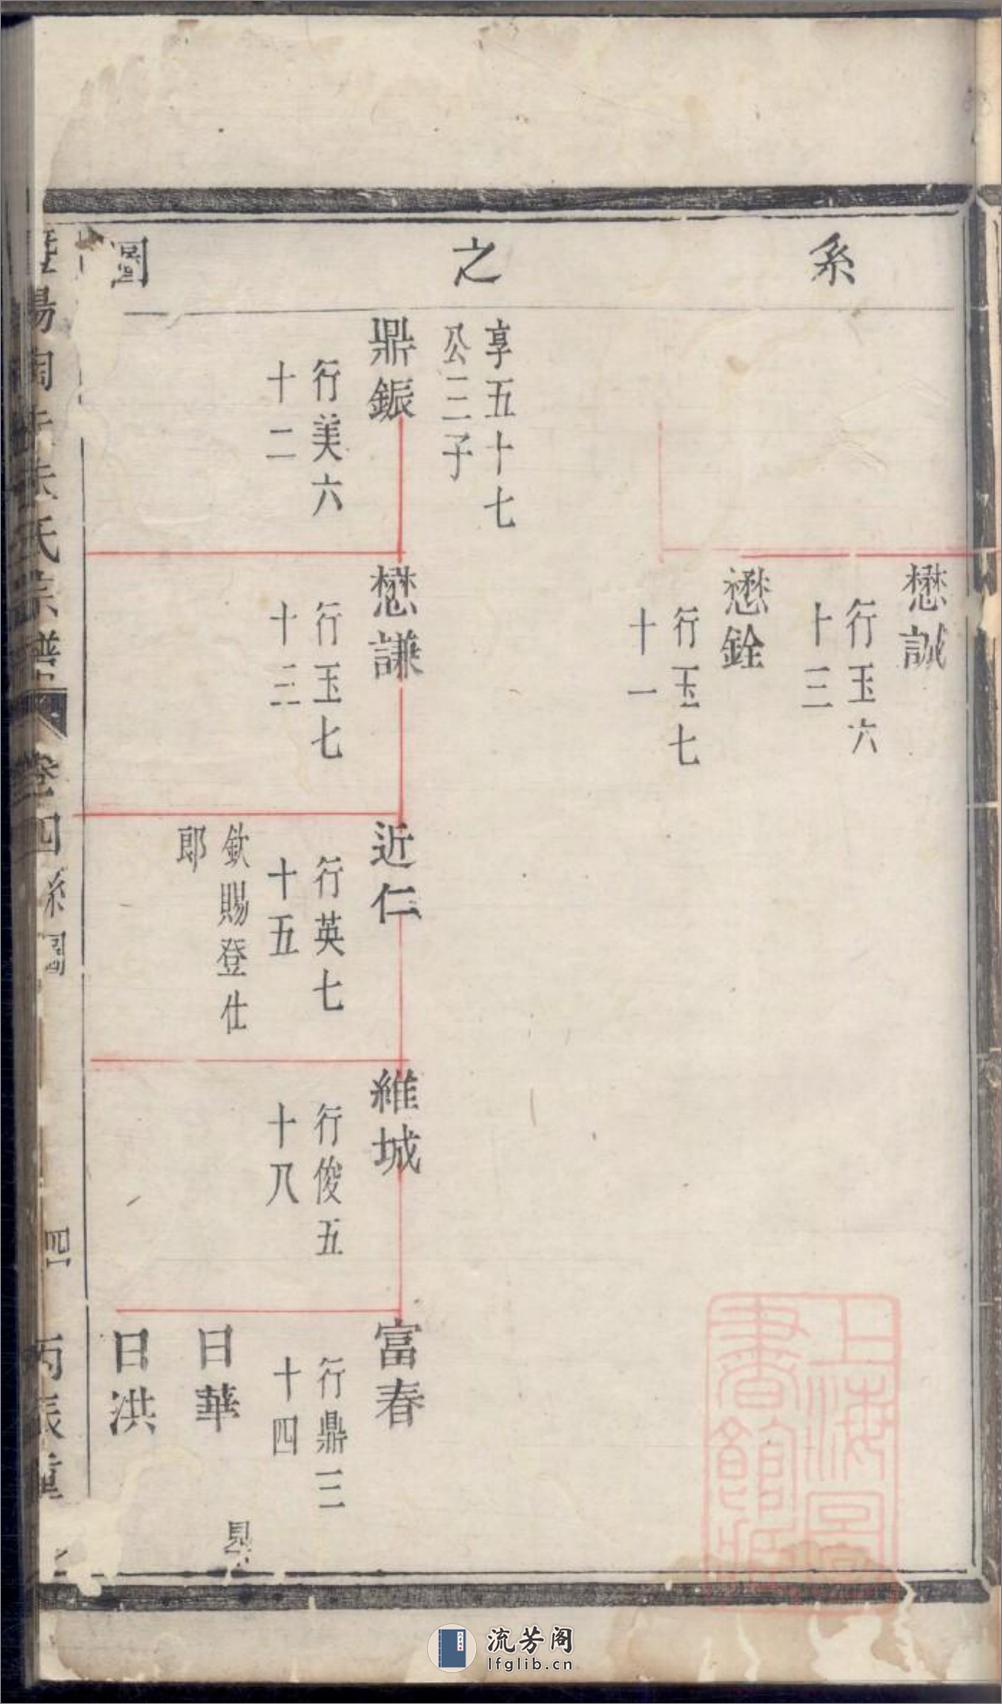 系之圖
懋誠
行玉六
十三
懋銓
行玉七
十一
享五十七
公三子
鼎鋠
行美六
十二
懋謙
行玉七
十三
近仁
行英七
十五
欽賜登仕
郎
維城
行俊五
十八
富春
行鼎三
十四
日華
日洪
氏宗譜
卷四
系圖
四
丙辰重
上海圖書館藏
流芳阁
lfglib.cn